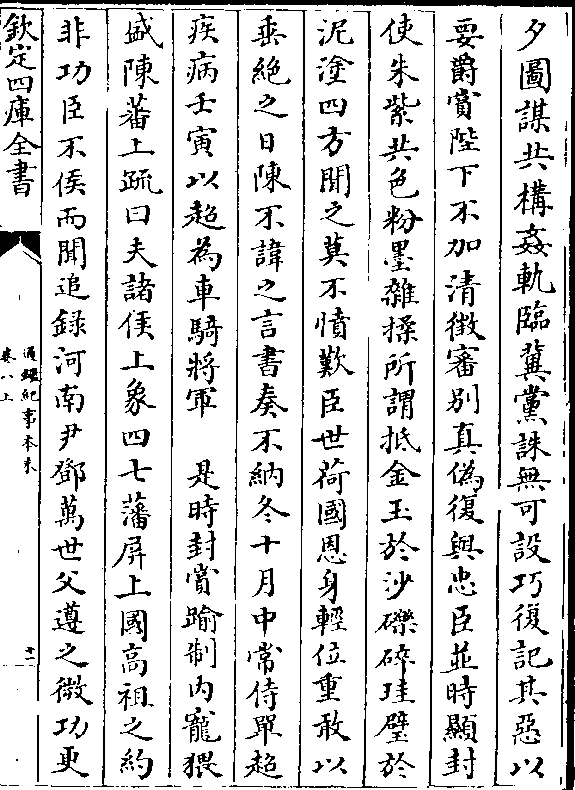 夕圖謀共構姦軌臨冀黨誅無可設巧復記其惡以
要爵賞陛下不加清徴審别真偽復與忠臣並時顯封
使朱紫共色粉墨雜揉所謂抵金玉於沙礫碎珪璧於
泥塗四方聞之莫不憤歎臣世荷國恩身輕位重敢以
垂絶之日陳不諱之言書奏不納冬十月中常侍單超
疾病壬寅以超為車騎將軍　是時封賞踰制内寵猥
盛陳蕃上疏曰夫諸侯上象四七藩屏上國髙祖之約
非功臣不侯而聞追錄河南尹鄧萬世父遵之微功更
欽定四庫全書
通鑑紀事本末
卷八上
十二